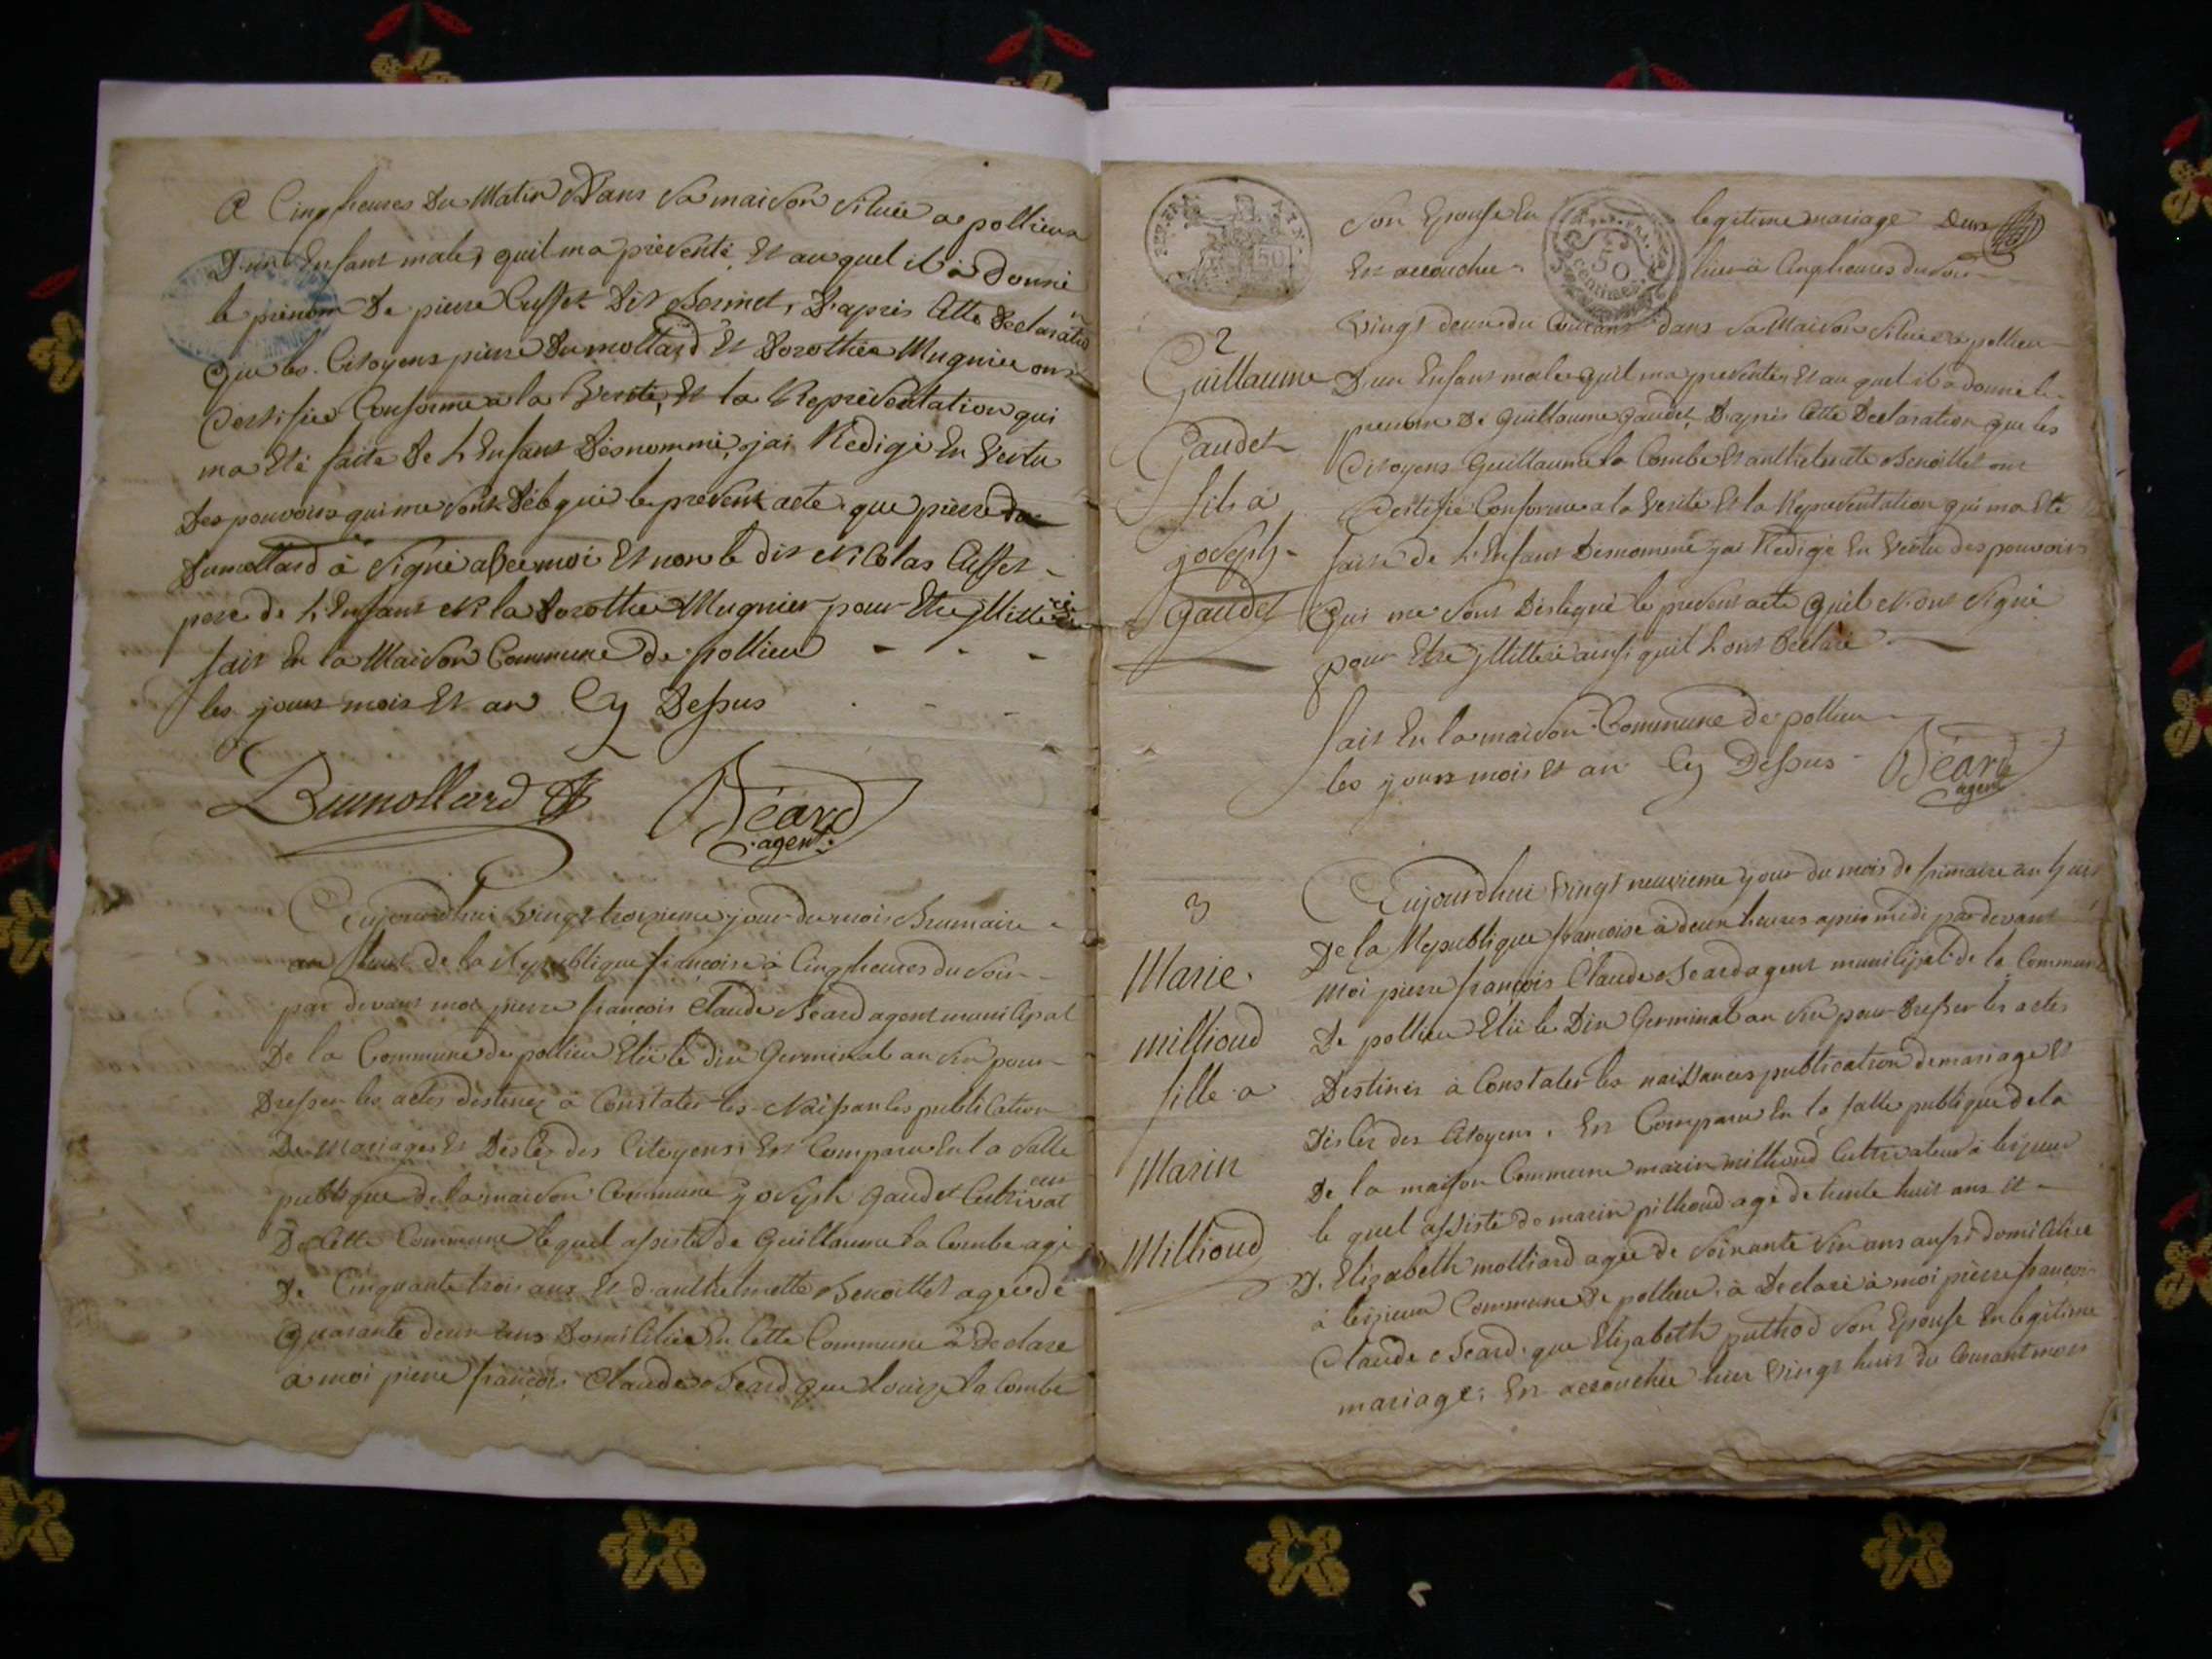 A Cinq heures Du Matin Dans Sa maison Située a pollieux
D'un Enfant male, quil ma présenté Et au quel il à Donné
le prénom De pierre Cusset Dit Bornet, D'après Cette Declaration
Que les Citoyens pierre Dumollard Et Dorothée Mugnier ont
Certifiée Conforme a la Verité, Et la Représentation qui
ma Eté faite De L'Enfant Dénommé, jai Redigé En Vertu
Des pouvoirs qui me sont Délégué le présent acte que pierre Du
Dumollard à Signé avec moi Et non le dit Nicolas Cusset
pere de L'Enfant Ni la Dorothée Mugnier pour Etre jllitteré
fait En la Maison Commune De pollieu
les jours mois Et an Cy Dessus
Dumollard
Béard
agent
Aujourdhui Vingt troisieme jour du mois Brumaire
an huit de la Republique françoise à Cinq heures du Soir
par devant moi pierre françois Claude Béard agent municipal
De la Commune de pollieu Elü le dix Germinal an Six pour
Dresser les actes destinez à Constater les Naissances publication
De Mariages Et Décès des Citoyens, Est Comparu En la Salle
publique de la maison Commune joseph gaudet Cultivateur
De Cette Commune lequel assisté de Guillaume la Combe agé
De Cinquante trois ans Et d'anthelmette Benoittet agée de
Quarante deux ans Domiciliée En Cette Commune a Declaré
à moi pierre françois Claude Béard que Louise la Combe
Son Epouse En legitime mariage Deux
Est accouchée hier à Cinq heures du Soir
Vingt deux du Courant dans Sa Maison Située a pollieu
2
Guillaume
Gaudet
fils a
joseph
gaudet
D'un Enfant male quil ma présenté, Et au quel il a donné le
prenom De Guillaume gaudet, D'après Cette Declaration que les
Citoyens Guillaume la Combe Et anthelmette Benoittet ont
Certifié Conforme a la Verité Et la Representation qui ma Eté
faite de L'Enfant Denommé jai Redigé En Vertu des pouvoirs
Qui me Sont Délégué le présent acte Quil N'ont Signé
pour Etre jllitteré ainsi quil L'ont Déclaré
fait En la maison Commune de pollieu
les jours mois et an Cy Dessus
Béard
agent
3
Marie
millioud
fille a
Marin
Millioud
Aujourdhui Vingt neuvieme jour du mois de frimaire an huit
De la Republique françoise à deux heures apres midi par devant
Moi pierre françois Claude Béard agent municipal de la Commune
De pollieu Elü le Dix Germinal an Six pour Dresser les actes
Destinés à Constater les naissances publication de mariage Et
Décès des Citoyens. Est Comparu En la salle publique de la
De la maison Commune marin millioud Cultivateur à
le quel assisté de marin pithoud agé de trente huit ans Et
D'Elizabeth molliard agée de Soixante Six ans aussi domiciliée
à Commune De pollieu, à Déclaré à moi pierre françois
Claude Béard. que Elizabeth puthod Son Epouse En legitime
mariage, Est accouchée hier Vingt huit du Courant mois